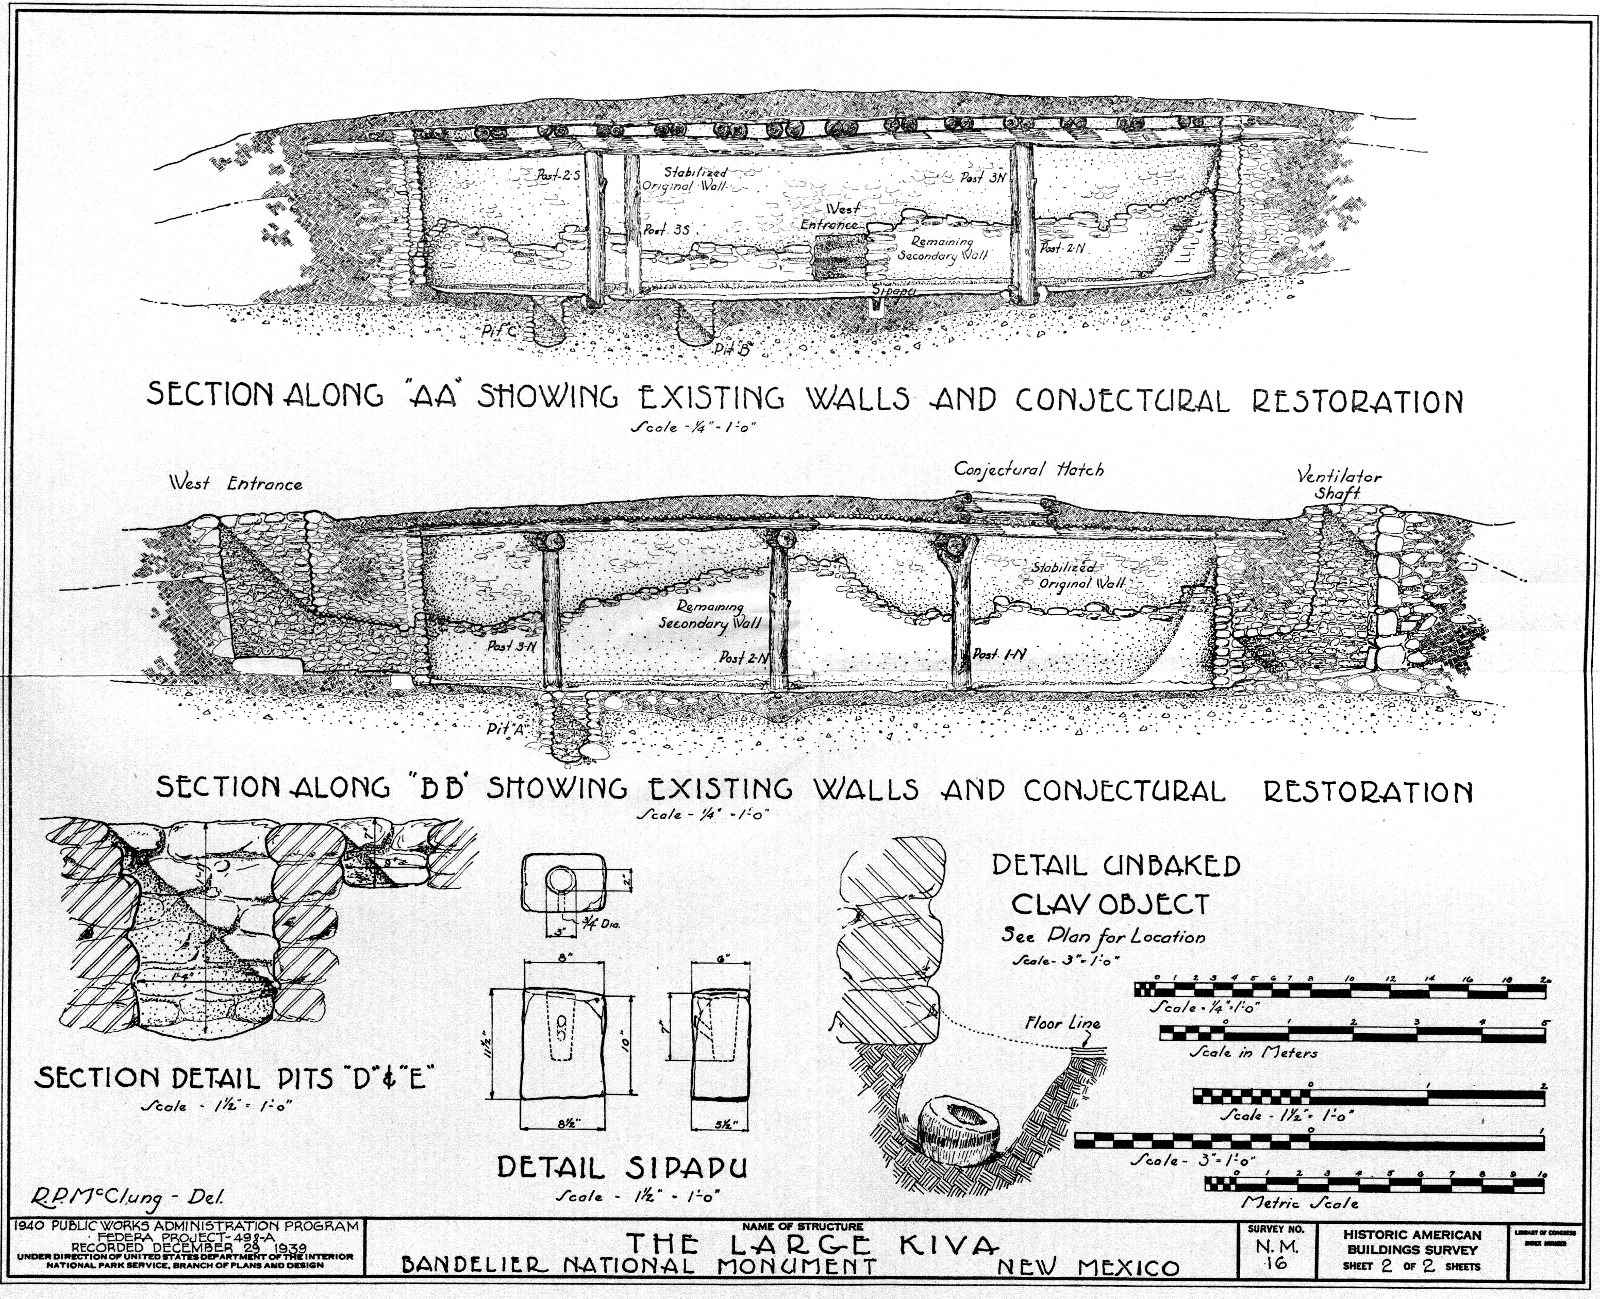 Post-2-S
Stabilized
Original Wall
Post 3N
West
Entrance
Post 3S
Remaining
Secondary Wall
Post 2-N
Sipapu
Pit "C"
Pit "B"
SECTION ALONG "AA" SHOWING EXISTING WALLS AND CONJECTURAL RESTORATION
Scale - 1/4" - 1'-0"
West Entrance
Conjectural Hatch
Ventilator
Shaft
Stabilized
Original Wall
Remaining
Secondary Wall
Post 3-N
Post 2-N
Post 1-N
Pit "A"
SECTION ALONG "BB" SHOWING EXISTING WALLS AND CONJECTURAL RESTORATION
Scale - 1/4" - 1'-0"
7"
SECTION DETAIL PITS "D" & "E"
Scale - 1 1/2" = 1'-0"
2"
3/4" Dia.
3"
8"
6"
11 1/2"
10"
7"
8 1/2"
5 1/2"
DETAIL SIPAPU
Scale - 1 1/2" - 1'-0"
DETAIL UNBAKED
CLAY OBJECT
See Plan for Location
Scale - 3" = 1'-0"
Floor Line
0 1 2 3 4 5 6 7 8 10 12 14 16 18 20
Scale - 1/4" = 1'-0"
0 1 2 3 4 5
Scale in Meters
0 1 2
Scale - 1 1/2" = 1'-0"
0 1
Scale - 3" = 1'-0"
0 1 2 3 4 5 6 7 8 9 10
Metric Scale
R.P. McClung - Del.
1940 PUBLIC WORKS ADMINISTRATION PROGRAM
FEDERA PROJECT-498-A
RECORDED DECEMBER 29, 1939
UNDER DIRECTION OF UNITED STATES DEPARTMENT OF THE INTERIOR
NATIONAL PARK SERVICE, BRANCH OF PLANS AND DESIGN
NAME OF STRUCTURE
THE LARGE KIVA
BANDELIER NATIONAL MONUMENT NEW MEXICO
SURVEY NO.
N.M.
16
HISTORIC AMERICAN
BUILDINGS SURVEY
SHEET 2 OF 2 SHEETS
LIBRARY OF CONGRESS
INDEX NUMBER